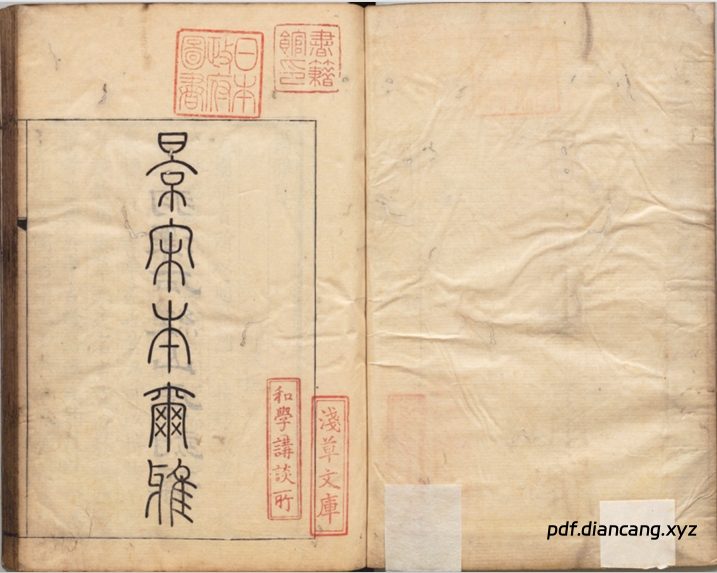 書籍館印
日本政府圖書
景宋本爾雅
淺草文庫
和學講談所
pdf.diancang.xyz